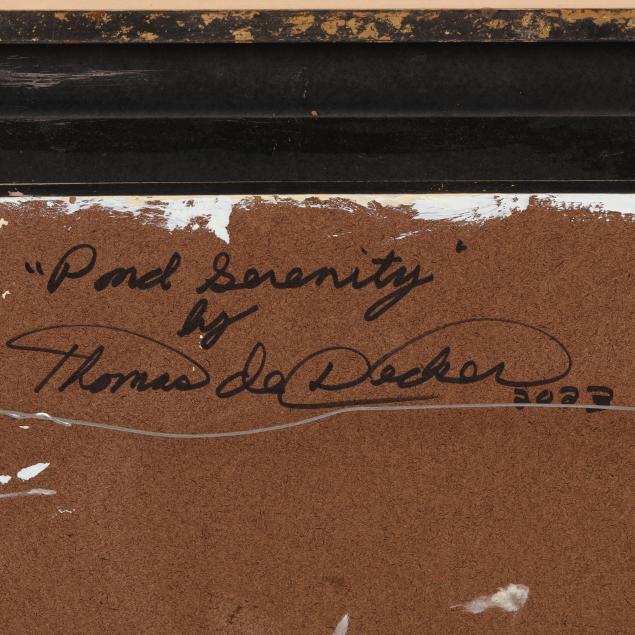 "Pond Serenity"
by
Thomas de Decker
2023